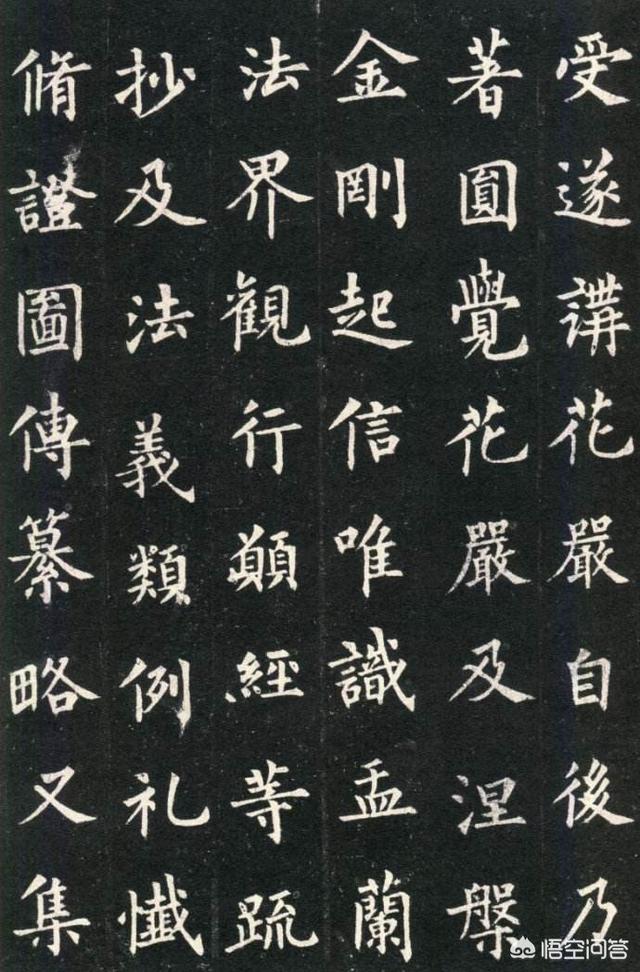 受遂講花嚴自後乃
著圓覺花嚴及涅槃
金剛起信唯識盂蘭
法界觀行願經等䟽
抄及法義類例礼懺
脩證圖傳纂略又集
悟空问答